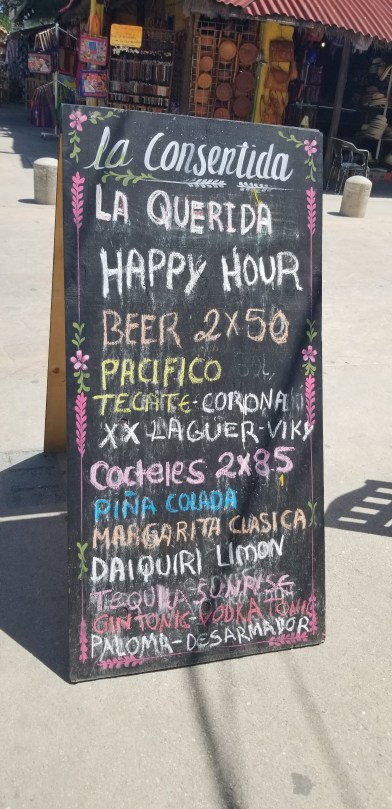 la Consentida
LA QUERIDA
HAPPY HOUR
BEER 2X50
PACIFICO
TECATE-CORONA
XX LAGUER-VIKY
Cocteles 2X85
PIÑA COLADA
MARGARITA CLASICA
DAIQUIRI LIMON
TEQUILA SUNRISE
GINTONIC-VODKA TONIC
PALOMA-DESARMADOR